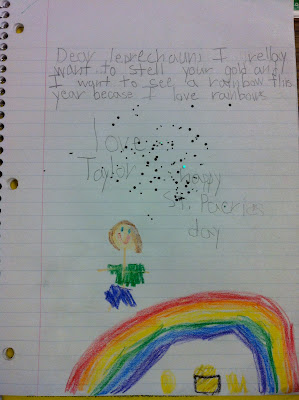 Dear leprechauns I rellay
want to stell your gold and
I want to see a rainbow this
year becase I love rainbows
love
Taylor happy
St. Pactricks
day